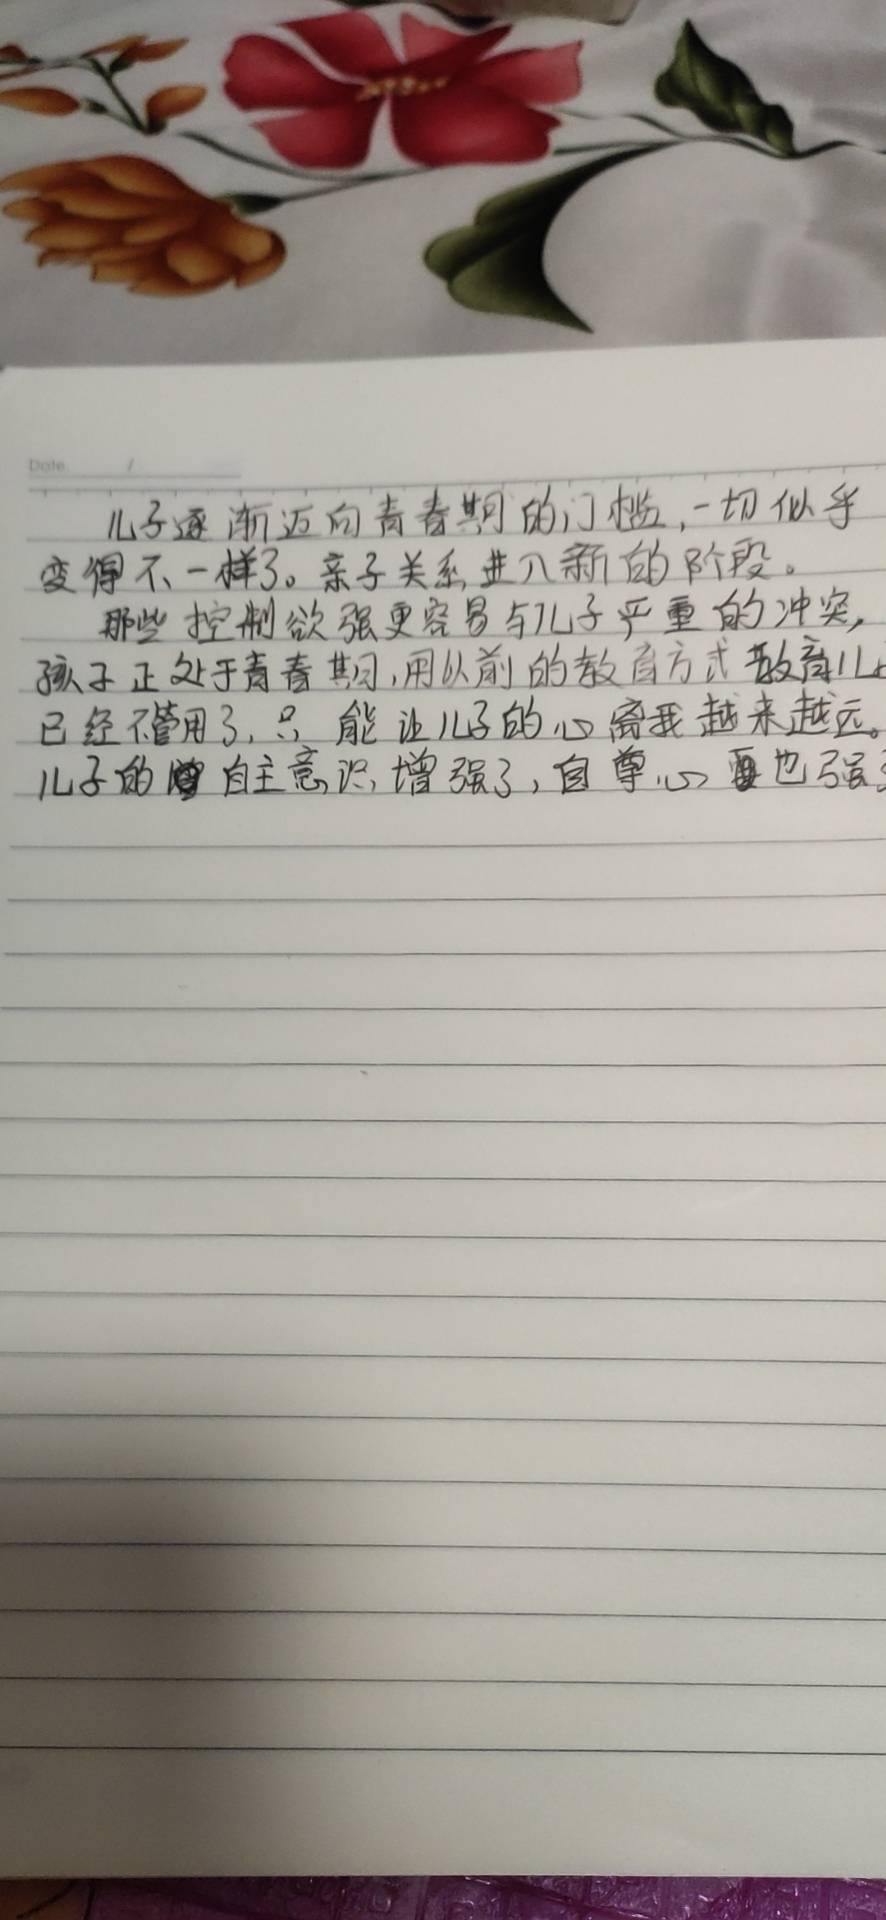 Date. /
儿子逐渐迈向青春期的门槛,一切似乎
变得不一样了。亲子关系进入新的阶段。
那些控制欲强更容易与儿子严重的冲突,
孩子正处于青春期,用以前的教育方式教育儿
已经不管用了,只能让儿子的心离我越来越远。
儿子的自主意识增强了,自尊心也强